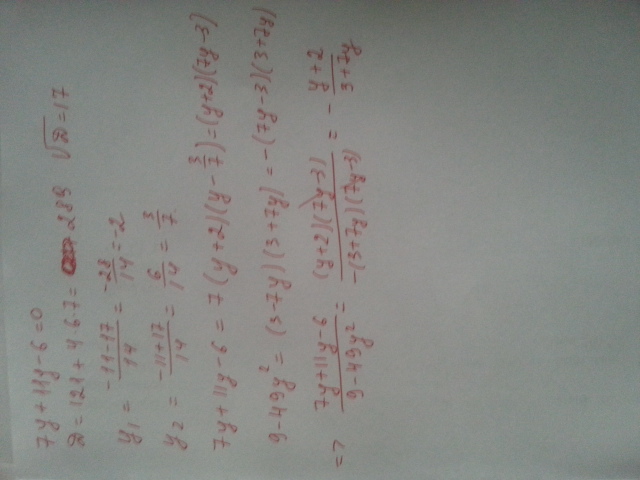 7y²+11y-6=0
D=121+4·6·7=289 √D=17
y₁ = (-11-17)/14 = -28/14 = -2
y₂ = (-11+17)/14 = 6/14 = 3/7
7y²+11y-6 = 7(y+2)(y-3/7)=(y+2)(7y-3)
9-49y² = (3-7y)(3+7y) = -(7y-3)(3+7y)
=> (7y²+11y-6)/(9-49y²) = (y+2)(7y-3)/(-(3+7y)(7y-3)) = - (y+2)/(3+7y)